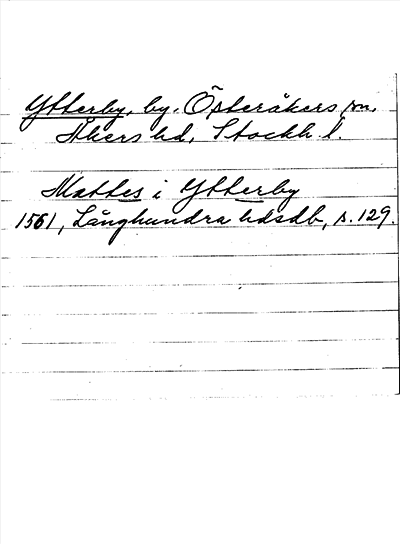 Ytterby, by, Österåkers sn,
Åkers hd, Stockh. l.
Mattes i Ytterby
1561, Långhundra hdsdb, s. 129.